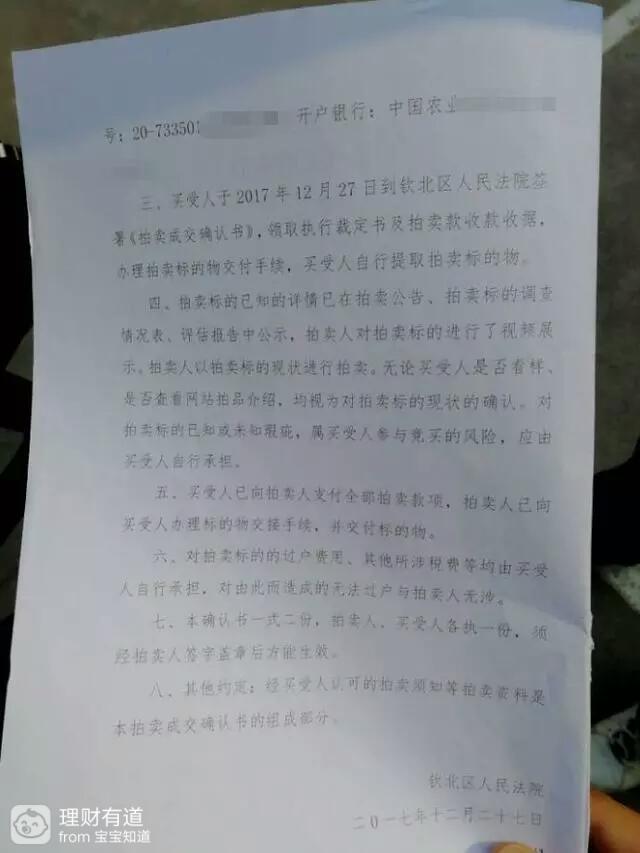 号：20-73350
开户银行：中国农业
三、买受人于 2017 年 12 月 27 日到钦北区人民法院签
署《拍卖成交确认书》，领取执行裁定书及拍卖款收款收据，
办理拍卖标的物交付手续，买受人自行提取拍卖标的物。
四、拍卖标的已知的详情已在拍卖公告、拍卖标的调查
情况表、评估报告中公示，拍卖人对拍卖标的进行了视频展
示。拍卖人以拍卖标的现状进行拍卖。无论买受人是否看样、
是否查看网站拍品介绍，均视为对拍卖标的现状的确认。对
拍卖标的已知或未知瑕疵，属买受人参与竞买的风险，应由
买受人自行承担。
五、买受人已向拍卖人支付全部拍卖款项，拍卖人已向
买受人办理标的物交接手续，并交付标的物。
六、对拍卖标的的过户费用、其他所涉税费等均由买受
人自行承担，对由此而造成的无法过户与拍卖人无涉。
七、本确认书一式二份，拍卖人、买受人各执一份，须
经拍卖人签字盖章后方能生效。
八、其他约定：经买受人认可的拍卖须知等拍卖资料是
本拍卖成交确认书的组成部分。
钦北区人民法院
二0一七年十二月二十七日
理财有道
from 宝宝知道